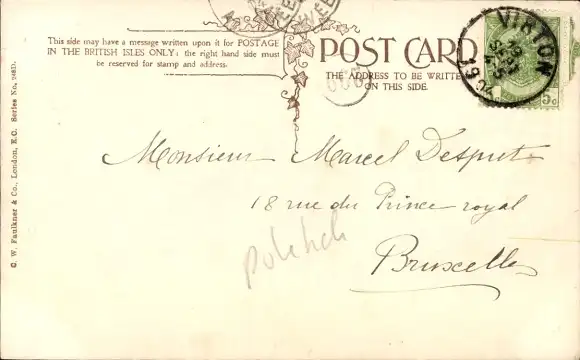 This side may have a message written upon it for POSTAGE
IN THE BRITISH ISLES ONLY: the right hand side must
be reserved for stamp and address.
POST CARD
THE ADDRESS TO BE WRITTEN
ON THIS SIDE.
VIRTON
5c
Monsieur Marcel Despret
18 rue du Prince royal
Bruxelles
C. W. Faulkner & Co., London, E.C. Series No. 268D.